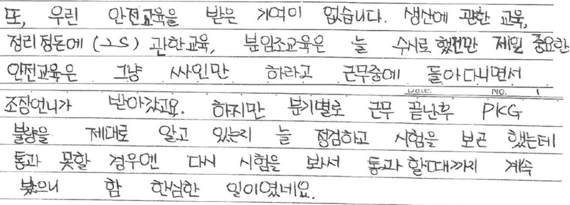 또, 우린 안전교육을 받은 기억이 없습니다. 생산에 관한 교육,
정리정돈에 (3S) 관한교육, 분임조교육은 늘 수시로 했지만 제일 중요한
안전교육은 그냥 싸인만 하라고 근무중에 돌아다니면서
NO. 1
조장언니가 받아갔고요. 하지만 분기별로 근무 끝난후 PKG
불량을 제대로 알고 있는지 늘 점검하고 시험을 보곤 했는데
통과 못할 경우엔 다시 시험을 봐서 통과 할때까지 계속
봤으니 참 한심한 일이였네요.